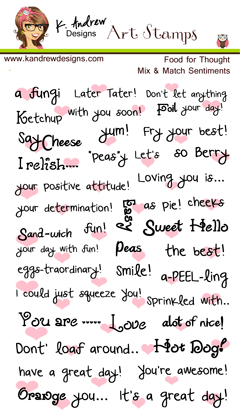 K. Andrew Designs Art Stamps
www.kandrewdesigns.com Food for Thought
Mix & Match Sentiments
a fungi Later Tater! Don't let anything
Ketchup with you soon! Foil your day!
Say Cheese yum! Fry your best!
I relish.... 'Peas'y Let's so Berry
your positive attitude! Loving you is...
your determination! Easy as pie! cheeks
Sand-wich fun! Sweet Hello
your day with fun! Peas the best!
eggs-traordinary! Smile! a-PEEL-ling
I could just squeeze you! Sprinkled with..
You are ----- Love alot of nice!
Dont' loaf around.. Hot Dog!
have a great day! You're awesome!
Orange you... It's a great day!